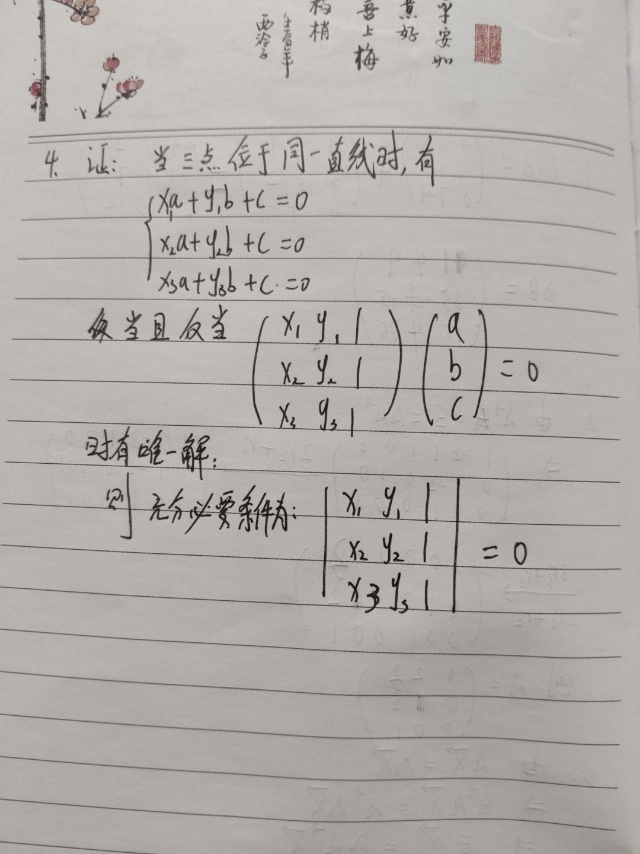 平安如
意好
喜上梅
枝梢
4. 证: 当三点位于同一直线时,有
x₁a+y₁b+c=0
x₂a+y₂b+c=0
x₃a+y₃b+c=0
当且仅当 (x₁ y₁ 1) (a)
(x₂ y₂ 1) (b) =0
(x₃ y₃ 1) (c)
时有唯一解;
则 充分必要条件为: |x₁ y₁ 1|
|x₂ y₂ 1| =0
|x₃ y₃ 1|